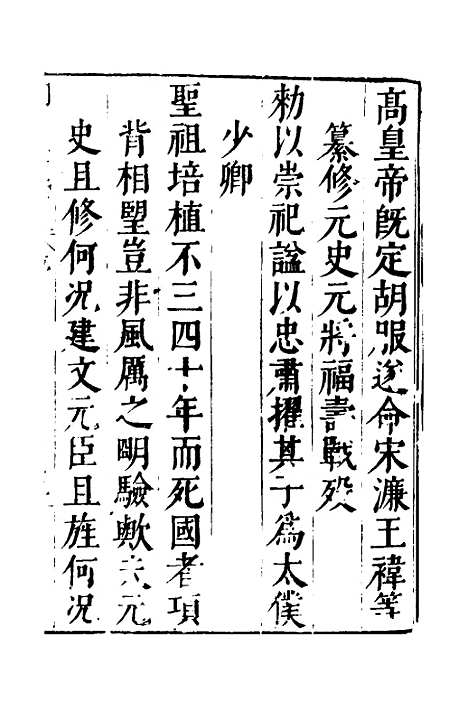 高皇帝旣定胡服遂命宋濂王褘等
纂修元史元將福壽戰歿
勑以崇祀諡以忠肅擢其子爲太僕
少卿
聖祖培植不三四十年而死國者項
背相朢豈非風厲之明驗歟夫元
史且修何况建文元臣且旌何况